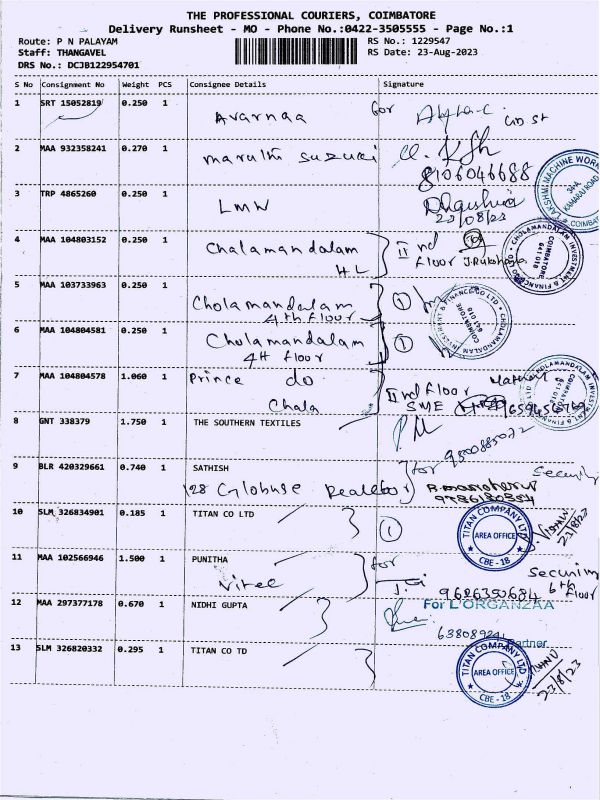 THE PROFESSIONAL COURIERS, COIMBATORE
Delivery Runsheet - MO - Phone No.:0422-3505555 - Page No.:1
Route: P N PALAYAM
RS No.: 1229547
Staff: THANGAVEL
RS Date: 23-Aug-2023
DRS No.: DCJB122954701
S No Consignment No Weight PCS Consignee Details Signature
1 SRT 15052819 0.250 1 Avarnaa for
2 MAA 932358241 0.270 1 maruthi suzuki
8106046688
LAKSHMI MACHINE WORK
34-A, KAMARAJ ROAD
COIMBAT
3 TRP 4865260 0.250 1 LMW
23/08/23
4 MAA 104803152 0.250 1 Cholamandalam II nd
H L floor
CHOLAMANDALAM INVESTMENT & FINANCE CO LTD
COIMBATORE
641 018
5 MAA 103733963 0.250 1 Cholamandalam 1
4th floor
CHOLAMANDALAM INVESTMENT & FINANCE CO LTD
COIMBATORE
641 018
6 MAA 104804581 0.250 1 Cholamandalam 1
4th floor
7 MAA 104804578 1.060 1 Prince do II nd floor
Chola SME
CHOLAMANDALAM
COIMBATORE
641 018
8 GNT 338379 1.750 1 THE SOUTHERN TEXTILES
9 BLR 420329661 0.740 1 SATHISH for Security
10 SLM 326834901 0.185 1 TITAN CO LTD 1
TITAN COMPANY LTD
AREA OFFICE
CBE - 18
VISHNU
23/8/23
11 MAA 102566946 1.500 1 PUNITHA for Security
6th floor
9626350684
12 MAA 297377178 0.670 1 NIDHI GUPTA For L'ORGANZAA
Partner
13 SLM 326820332 0.295 1 TITAN CO TD
TITAN COMPANY LTD
AREA OFFICE
CBE - 18
VISHNU
23/8/23